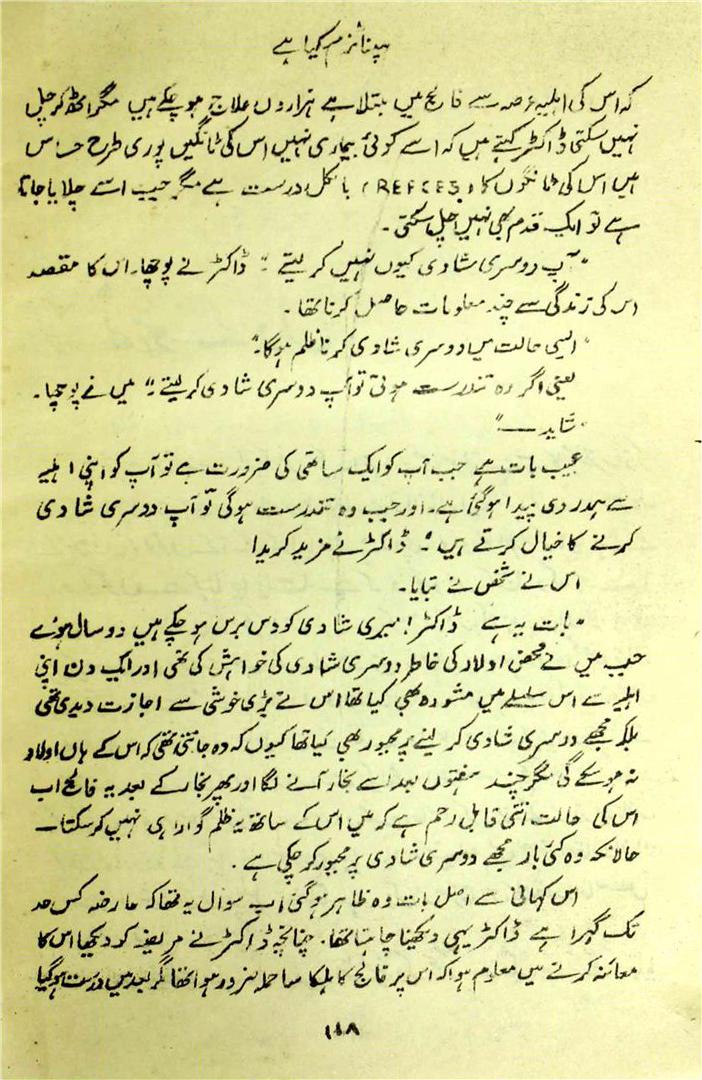 ہپناٹزم کیا ہے
کہ اس کی اہلیہ عرصہ سے فالج میں مبتلا ہے ہزاروں علاج ہو چکے ہیں مگر اٹھ کر چل
نہیں سکتی ڈاکٹر کہتے ہیں کہ اسے کوئی بیماری نہیں اس کی ٹانگیں پوری طرح حساس
ہیں اس کی ٹانگوں کا (REFCES) بالکل درست ہے مگر جب اسے چلایا جاتا
ہے تو ایک قدم بھی نہیں چل سکتی۔
"آپ دوسری شادی کیوں نہیں کر لیتے" ڈاکٹر نے پوچھا۔ اس کا مقصد
اس کی زندگی سے چند معلومات حاصل کرنا تھا۔
"ایسی حالت میں دوسری شادی کرنا ظلم ہوگا۔"
یعنی اگر وہ تندرست ہوتی تو آپ دوسری شادی کر لیتے۔" میں نے پوچھا۔
"شاید ــــ"
عجیب بات ہے جب آپ کو ایک ساتھی کی ضرورت ہے تو آپ کو اپنی اہلیہ
سے ہمدردی پیدا ہوگئی ہے۔ اور جب وہ تندرست ہوگی تو آپ دوسری شادی
کرنے کا خیال کرتے ہیں"۔ ڈاکٹر نے مزید کریدا
اس نے شخص نے بتایا۔
"بات یہ ہے ڈاکٹر! میری شادی کو دس برس ہو چکے ہیں دو سال ہوئے
جب میں نے محض اولاد کی خاطر دوسری شادی کی خواہش کی تھی اور ایک دن اپنی
اہلیہ سے اس سلسلے میں مشورہ بھی کیا تھا اس نے بڑی خوشی سے اجازت دیدی تھی
بلکہ مجھے دوسری شادی کر لینے پر مجبور بھی کیا تھا کیوں کہ وہ جانتی تھی کہ اس کے ہاں اولاد
نہ ہو سکے گی مگر چند ہفتوں بعد اسے بخار آنے لگا اور پھر بخار کے بعد یہ فالج اب
اس کی حالت اتنی قابل رحم ہے کہ میں اس کے ساتھ یہ ظلم گوارا ہی نہیں کر سکتا ــ
حالانکہ وہ کئی بار مجھے دوسری شادی پر مجبور کر چکی ہے۔
اس کہانی سے اصل بات وہ ظاہر ہوگئی اب سوال یہ تھا کہ عارضہ کس حد
تک گہرا ہے ڈاکٹر یہی دیکھنا چاہتا تھا۔ چنانچہ ڈاکٹر نے مریضہ کو دیکھا اس کا
معائنہ کرنے میں معلوم ہوا کہ اس پر فالج کا ہلکا سا حملہ ضرور ہوا تھا مگر بعد میں درست ہو گیا
۱۱۸